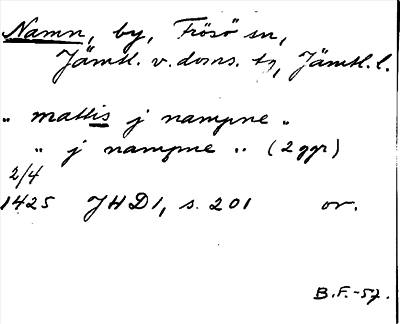 Namn, by, Frösö sn,
Jämtl. v. doms. tg, Jämtl. l.
„ mattis j nampne „
„ j nampne „ (2 ggr)
2/4
1425 JHD1, s. 201 or.
B.F.-57.